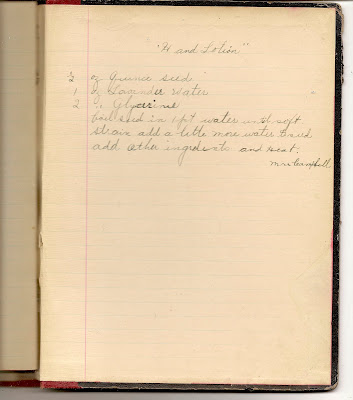 "Hand Lotion"
½ oz Quince seed
1 oz Lavinder Water
2 oz Glycerine
boil seed in 1 pt water until soft
strain add a little more water to seed
add other ingredients and heat.
Mrs Campbell